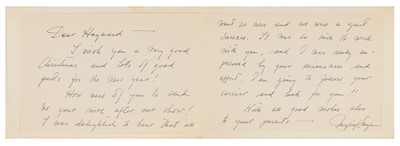 Dear Hayward —
I wish you a very good
Christmas and lots of good
parts for the new year!
How nice of you to send
me your note after our show!
I was delighted to hear that all
went so well and we were a great
success. It was so nice to work
with you, and I was really im-
pressed by your seriousness and
effort. I am going to follow your
career and look for you!!
With all good wishes also
to your parents —